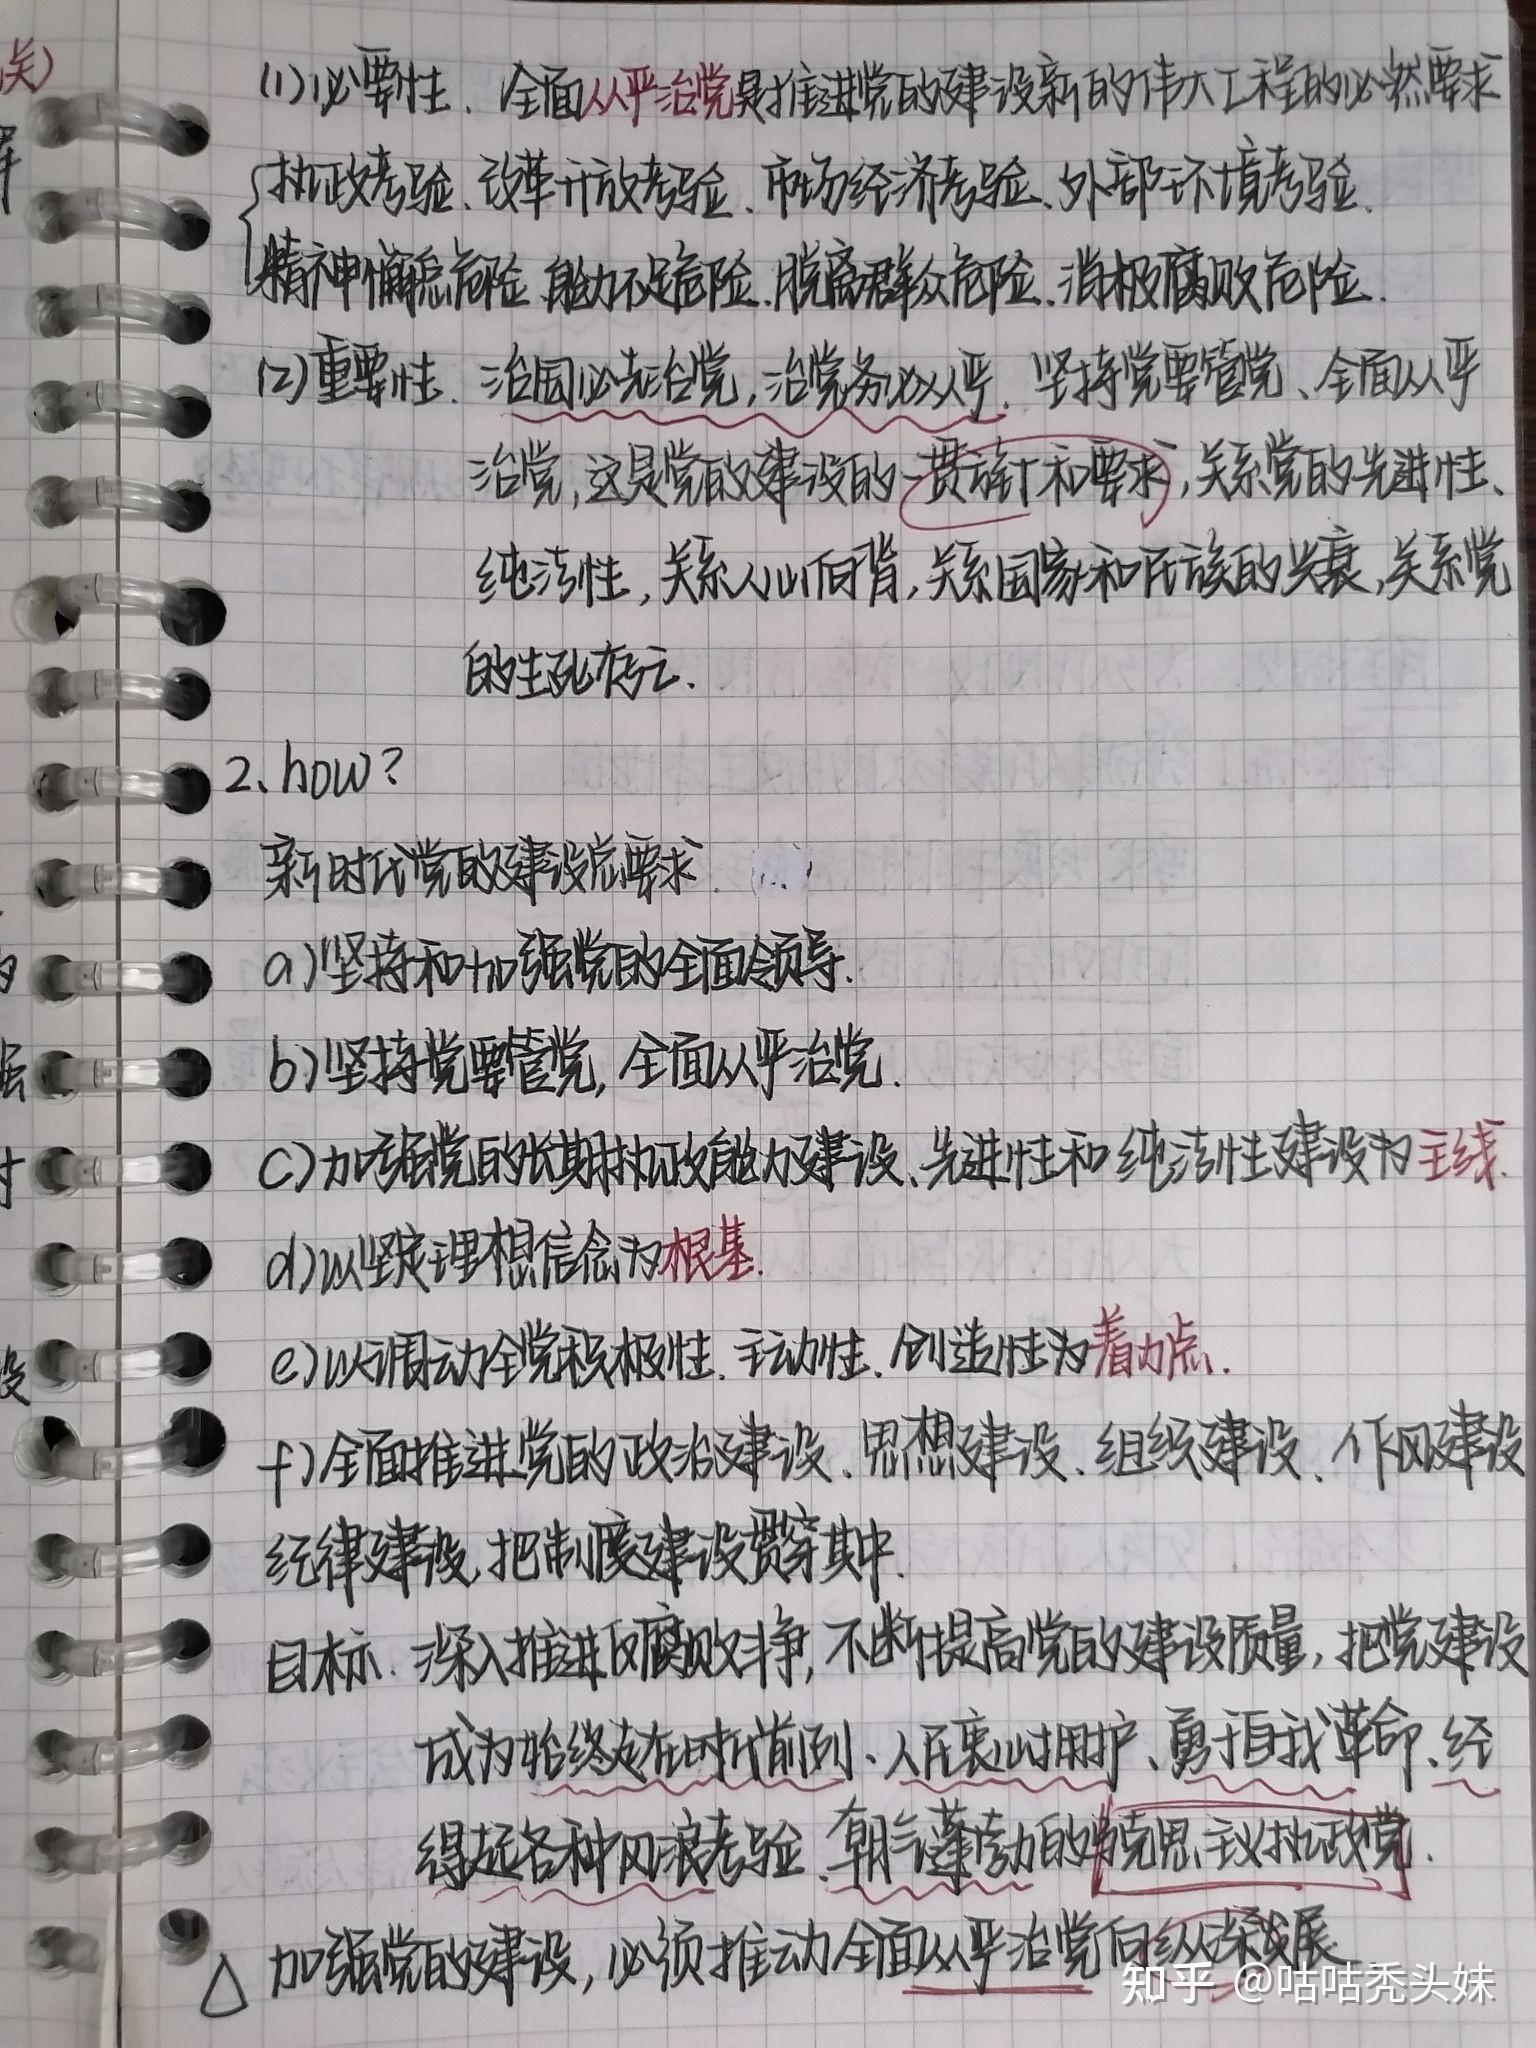 关)
(1)必要性、全面从严治党是推进党的建设新的伟大工程的必然要求
执政考验、改革开放考验、市场经济考验、外部环境考验.
精神懈怠危险、能力不足危险、脱离群众危险、消极腐败危险.
(2)重要性、治国必先治党,治党务必从严、坚持党要管党、全面从严
治党,这是党的建设的一贯方针和要求,关系党的先进性、
纯洁性,关系人心向背,关系国家和民族的兴衰,关系党
的生死存亡.
2、how?
新时代党的建设总要求.
a)坚持和加强党的全面领导.
b)坚持党要管党,全面从严治党.
c)加强党的长期执政能力建设、先进性和纯洁性建设为主线.
d)以坚定理想信念为根基.
e)以调动全党积极性、主动性、创造性为着力点.
f)全面推进党的政治建设、思想建设、组织建设、作风建设
纪律建设,把制度建设贯穿其中.
目标.深入推进反腐败斗争,不断提高党的建设质量,把党建设
成为始终走在时代前列、人民衷心拥护、勇于自我革命、经
得起各种风浪考验、朝气蓬勃的马克思主义执政党.
△加强党的建设,必须推动全面从严治党向纵深发展
知乎 @咕咕秃头妹